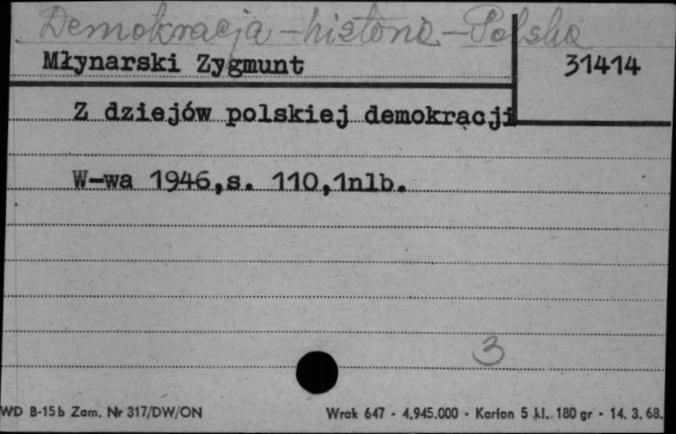 Demokracja - historia - Polska
Młynarski Zygmunt
31414
Z dziejów polskiej demokracji
W-wa 1946,s. 110,1nlb.
3
WD B-15b Zam. Nr 317/DW/ON
Wrak 647 - 4.945.000 - Karton 5 kl. 180 gr - 14. 3. 68.